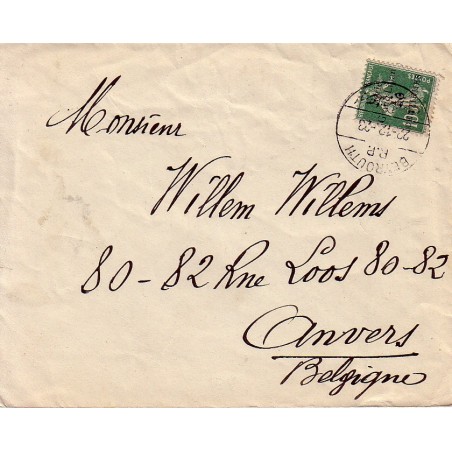 Monsieur
Willem Willems
80-82 Rue Loos 80-82
Anvers
Belgique
BEYROUTH
R.P.
22-12-23
POSTES